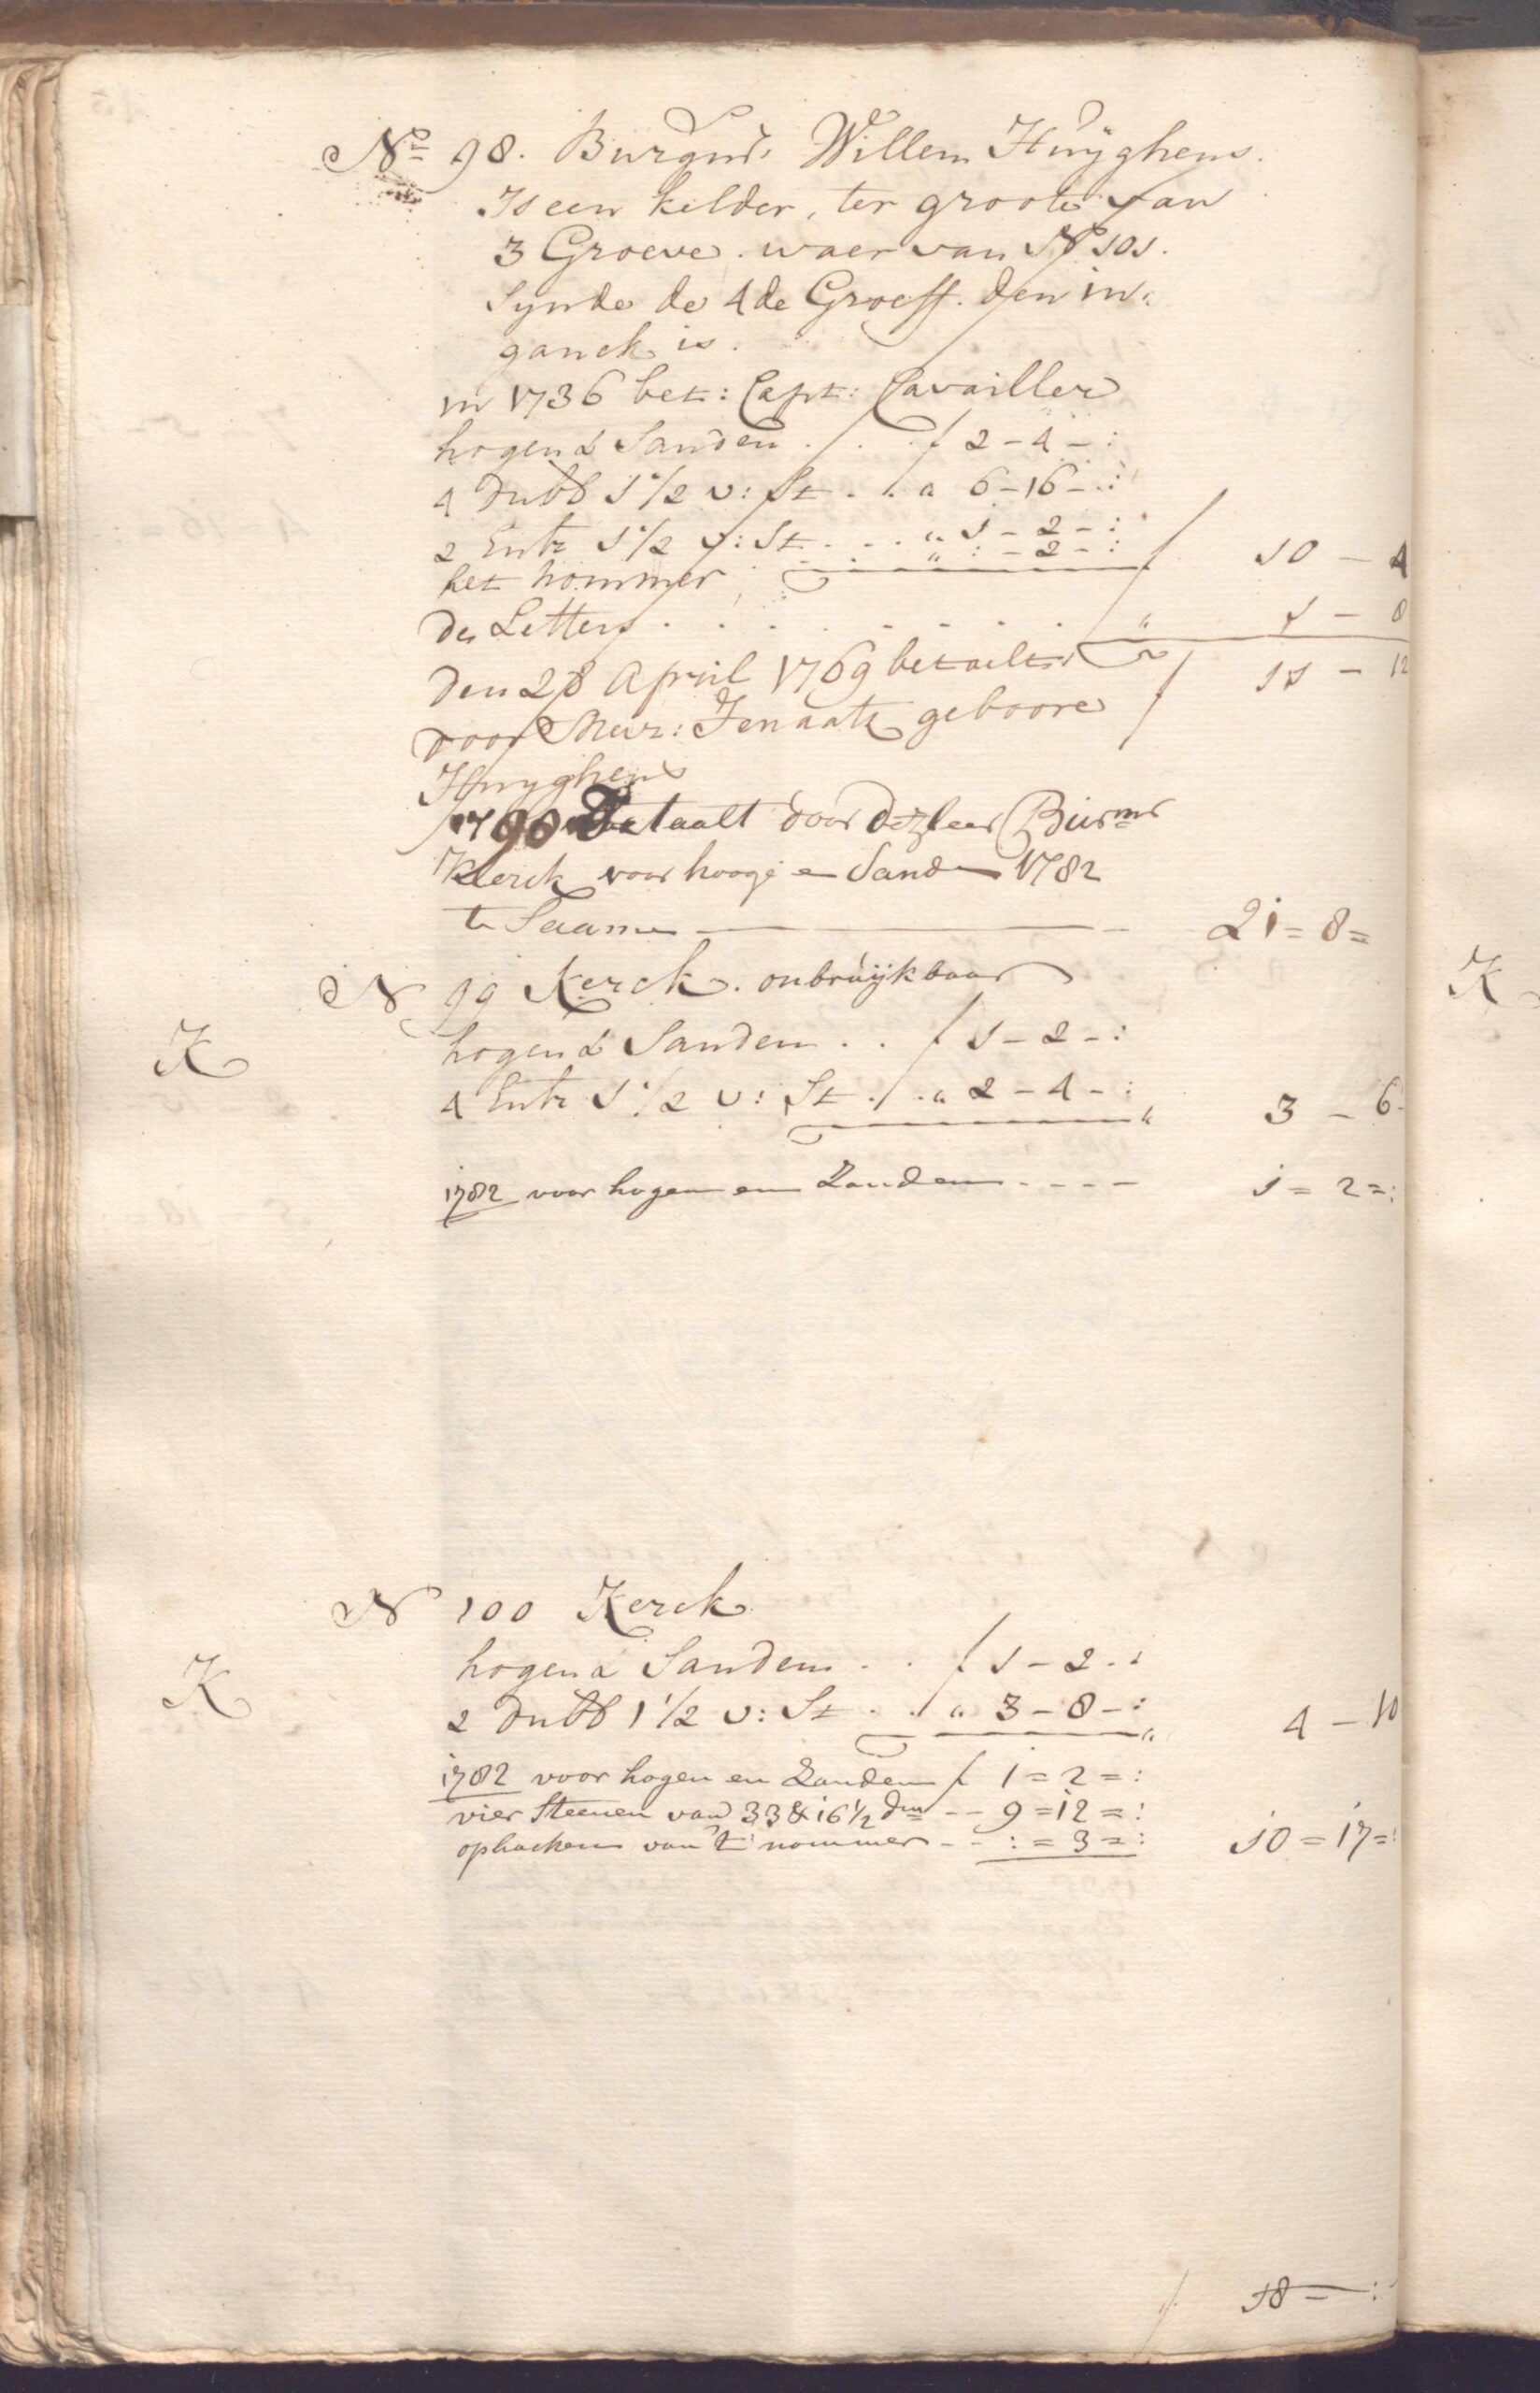 No 98. Burgmr Willem Huÿghens.
Is een kelder, ter groote van
3 Groeve. waer van No 101.
Synde de 4de Groeff. den in-
ganck is.
in 1736 bet: Capt: Cavailler
hogen & Sanden . . . f 2 - 4 - :
4 dubb 1 1/2 v: St . . a 6 - 16 - :
2 Entr 1 1/2 v: St . . . " 1 - 2 - :
het nommer " : - 2 - : f 10 - 4
de Letters . . . . . . . " 1 - 8
den 28 April 1769 betaelt f 11 - 12
door Mevr: Jenaatz geboore
Huyghens
1790 Betaalt door Burmr
Kerck voor hooge en Sanden 1782
te Saamen 21 = 8 =
N 99 Kerck. onbruÿkbaar
K
hogen & Sanden . . f 1 - 2 - :
4 Entr 1 1/2 v: St . . " 2 - 4 - : " 3 - 6 -
1782 voor hogen en Zanden - - - - 1 = 2 = :
N 100 Kerck
K
hogen & Sanden . . f 1 - 2 - :
2 dubb 1 1/2 v: St . . " 3 - 8 - : " 4 - 10
1782 voor hogen en Zanden f 1 = 2 = :
vier Steenen van 33 & 16 1/2 dm - - 9 = 12 = :
ophacken van 't nommer - - : = 3 = : 10 = 17 = :
f 18 - :
K